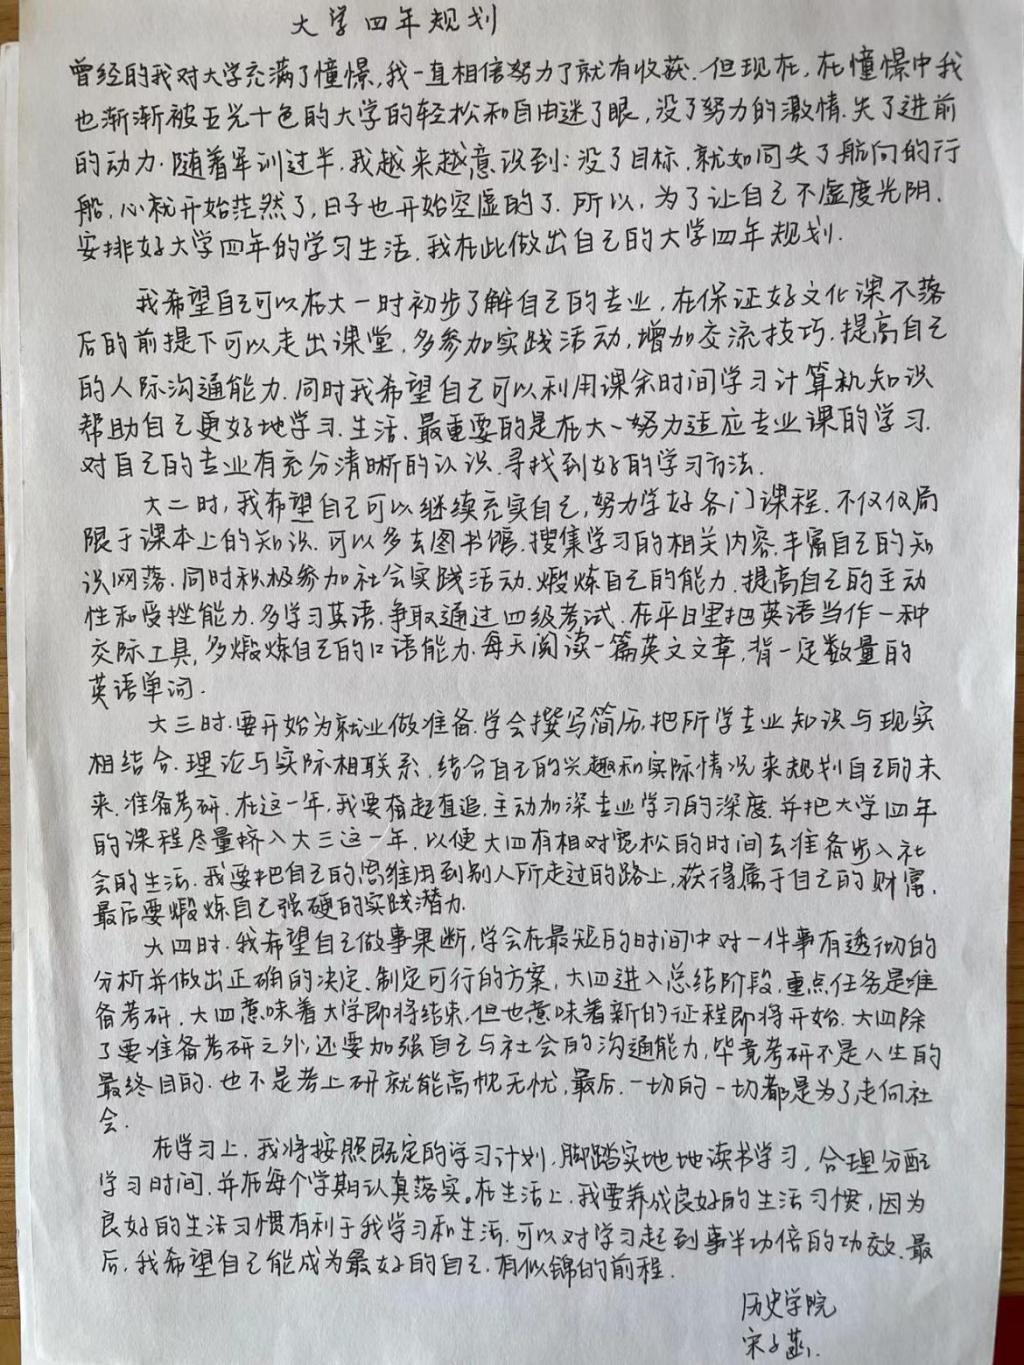 大学四年规划
曾经的我对大学充满了憧憬,我一直相信努力了就有收获.但现在,在憧憬中我
也渐渐被五光十色的大学的轻松和自由迷了眼,没了努力的激情.失了进前
的动力.随着军训过半.我越来越意识到:没了目标.就如同失了航向的行
船,心就开始茫然了,日子也开始空虚的了.所以,为了让自己不虚度光阴.
安排好大学四年的学习生活.我在此做出自己的大学四年规划.
我希望自己可以在大一时初步了解自己的专业,在保证好文化课不落
后的前提下可以走出课堂.多参加实践活动,增加交流技巧.提高自己
的人际沟通能力.同时我希望自己可以利用课余时间学习计算机知识
帮助自己更好地学习.生活.最重要的是在大一努力适应专业课的学习.
对自己的专业有充分清晰的认识.寻找到好的学习方法.
大二时,我希望自己可以继续充实自己,努力学好各门课程.不仅仅局
限于课本上的知识.可以多去图书馆.搜集学习的相关内容.丰富自己的知
识网落.同时积极参加社会实践活动.煅炼自己的能力.提高自己的主动
性和受挫能力.多学习英语.争取通过四级考试.在平日里把英语当作一种
交际工具,多煅炼自己的口语能力.每天阅读一篇英文文章,背一定数量的
英语单词.
大三时.要开始为就业做准备.学会撰写简历.把所学专业知识与现实
相结合.理论与实际相联系.结合自己的兴趣和实际情况来规划自己的未
来.准备考研.在这一年,我要奋起直追.主动加深专业学习的深度.并把大学四年
的课程尽量挤入大三这一年.以便大四有相对宽松的时间去准备步入社
会的生活.我要把自己的思维用到别人所走过的路上,获得属于自己的财富.
最后要煅炼自己强硬的实践潜力.
大四时.我希望自己做事果断,学会在最短的时间中对一件事有透彻的
分析并做出正确的决定、制定可行的方案,大四进入总结阶段,重点任务是准
备考研.大四意味着大学即将结束,但也意味着新的征程即将开始.大四除
了要准备考研之外,还要加强自己与社会的沟通能力,毕竟考研不是人生的
最终目的.也不是考上研就能高枕无忧,最后.一切的一切都是为了走向社
会.
在学习上.我将按照既定的学习计划,脚踏实地地读书学习,合理分配
学习时间.并在每个学期认真落实。在生活上.我要养成良好的生活习惯,因为
良好的生活习惯有利于我学习和生活.可以对学习起到事半功倍的功效.最
后,我希望自己能成为最好的自己.有似锦的前程.
历史学院
宋子菡